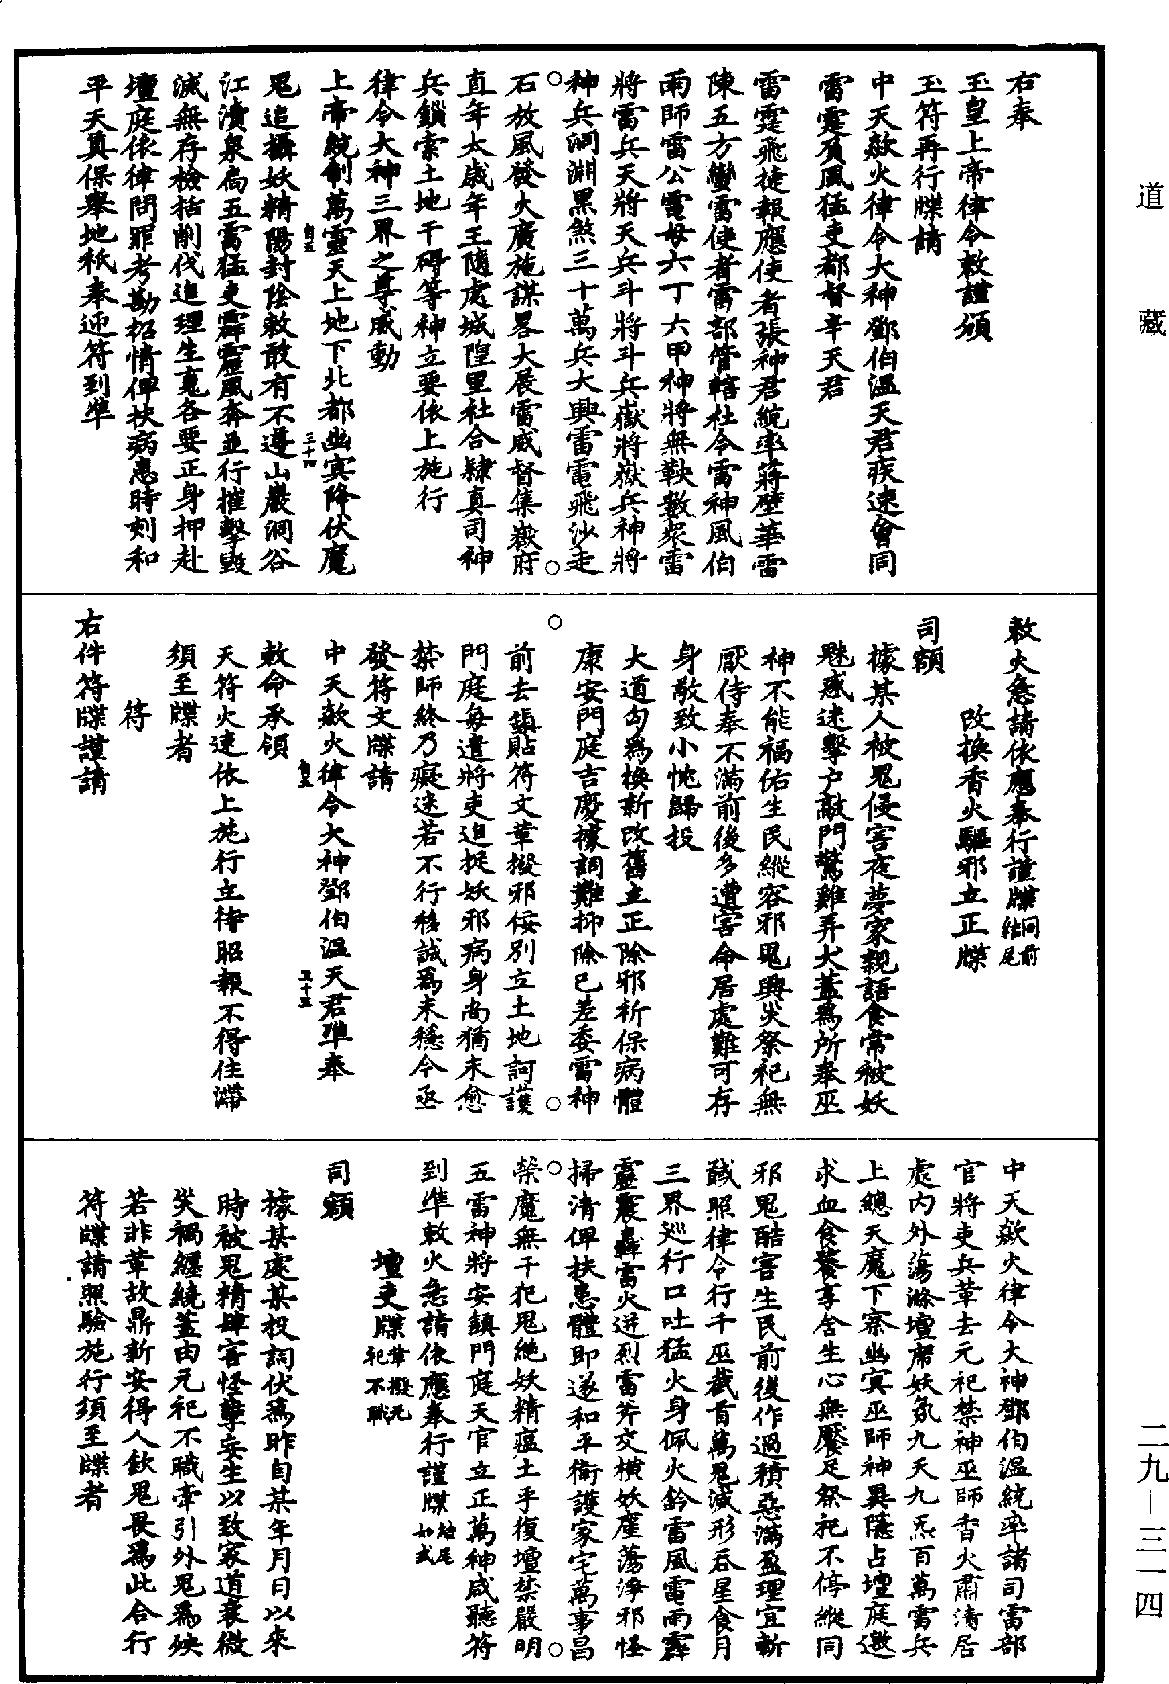 道藏
右奉
玉皇上帝律令敕謹頒
玉符再行牒請
中天歘火律令大神鄧伯溫天君疾速會同
雷霆飛捷報應使者張神君統率蔣壁華雷
陳五方蠻雷使者雷部管轄杜令雷神風伯
雨師雷公電母六丁六甲神將無鞅數衆雷
將雷兵天將天兵斗將斗兵嶽將嶽兵神將
神兵洞淵黑煞三十萬兵大興雷電飛沙走
石放風發火廣施謀畧大展雷威督集嶽府
直年太歲年王隨處城隍里社合隷真司神
兵鎖索土地干碍等神立要依上施行
律令大神三界之尊威動
上帝統制萬靈天上地下北都幽冥降伏魔
鬼追攝妖精陽封陰敕敢有不遵山巖洞谷
江瀆泉扃五雷猛吏霹靂風奔並行摧擊毀
滅無存檢括削伐追理生寃各要正身押赴
壇庭依律問罪考勘招情俾扶病患時刻和
平天真保舉地祇奉迎符到準
敕火急請依應奉行謹牒結尾同前
改換香火驅邪立正牒
司額
據某人被鬼侵害夜夢家親語食常被妖
魅惑迷擊户敲門驚雞弄犬蓋爲所奉巫
神不能福佑生民縱容邪鬼興災祭祀無
厭侍奉不滿前後多遭害命居處難可存
身敬致小忱歸投
大道匄爲換新改舊立正除邪祈保病體
康安門庭吉慶據詞難抑除已差委雷神
前去鎮貼符文革撥邪佞别立土地訶護
門庭每遣將吏追捉妖邪病身尚猶未愈
禁師終乃癡迷若不行移誠爲未穩今亟
發符文牒請
中天歘火律令大神鄧伯溫天君準奉
敕命承領
天符火速依上施行立待昭報不得住滯
須至牒者
符
右件符牒謹請
中天歘火律令大神鄧伯溫統率諸司雷部
官將吏兵革去元祀禁神巫師香火肅清居
處内外蕩滌壇席妖氛九天九炁百萬雷兵
上總天魔下察幽冥巫師神異隱占壇庭邀
求血食饕享含生心無饜足祭祀不停縱同
邪鬼酷害生民前後作過積惡滿盈理宜斬
馘照律令行千巫截首萬鬼滅形吞星食月
三界巡行口吐猛火身佩火鈴雷風電雨霹
靂震轟雷火迸烈雷斧交横妖窪蕩淨邪怪
掃清俾扶患體即遂和平衛護家宅萬事昌
榮魔無干犯鬼絶妖精瘟土乎復壇禁嚴明
五雷神將安鎮門庭天官立正萬神咸聽符
到準敕火急請依應奉行謹牒結尾如式
壇吏牒革撥元祀不職
司額
據某處某投詞伏爲昨自某年月日以來
時被鬼精肆害怪孽妄生以致家道衰微
災禍纏繞蓋由元祀不職牽引外鬼爲殃
若非革故鼎新安得人欽鬼畏爲此合行
符牒請照驗施行須至牒者
二九—三一四